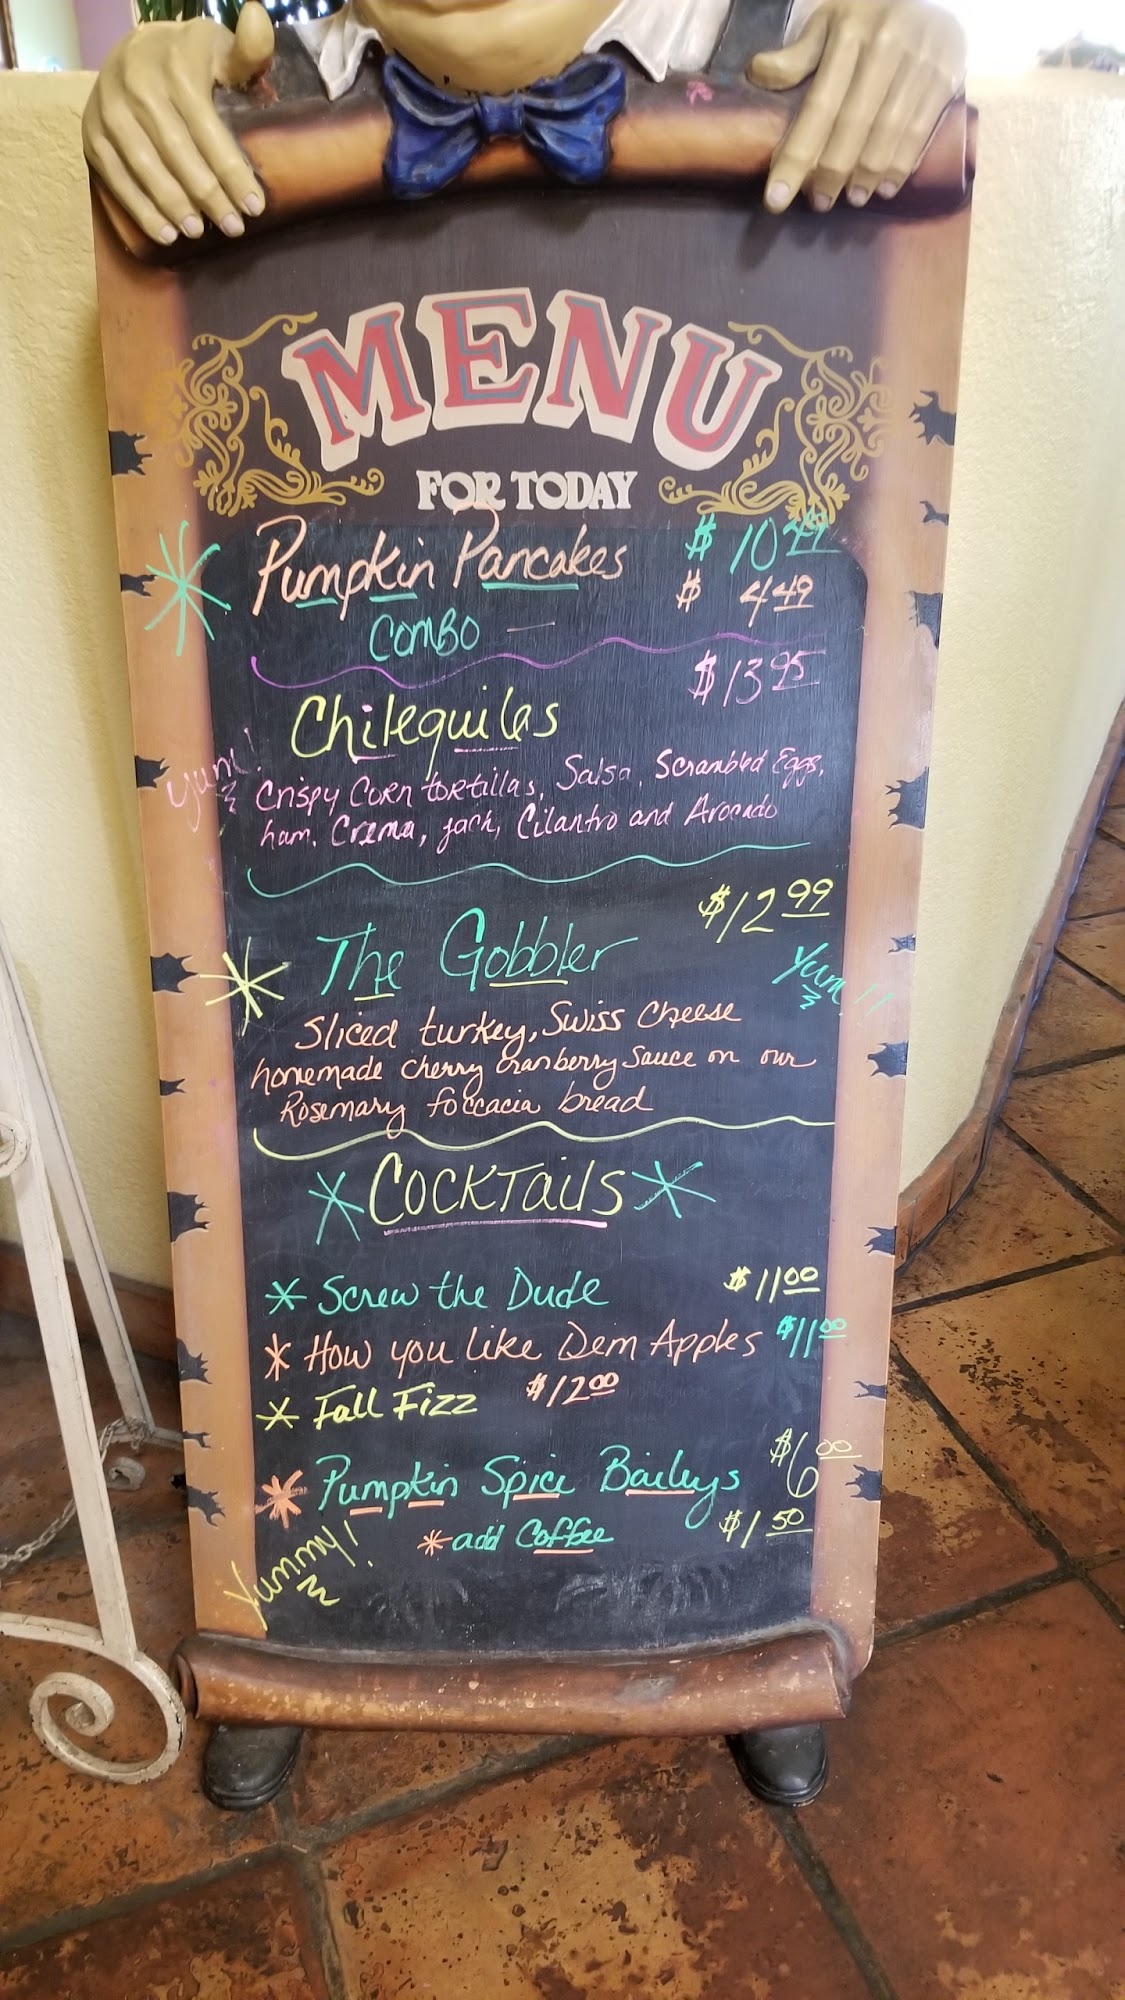 MENU
FOR TODAY
Pumpkin Pancakes $10.49
Combo — $4.49
$13.95
Chilequiles
Yum! Crispy Corn tortillas, Salsa, Scrambled Eggs,
ham, Crema, jack, Cilantro and Avocado
$12.99
The Gobbler
Yum!!
Sliced turkey, Swiss Cheese
homemade cherry cranberry Sauce on our
Rosemary foccacia bread
Cocktails
Screw the Dude $11.00
How you like Dem Apples $11.00
Fall Fizz $12.00
Pumpkin Spice Baileys $6.00
add Coffee $1.50
Yummy!